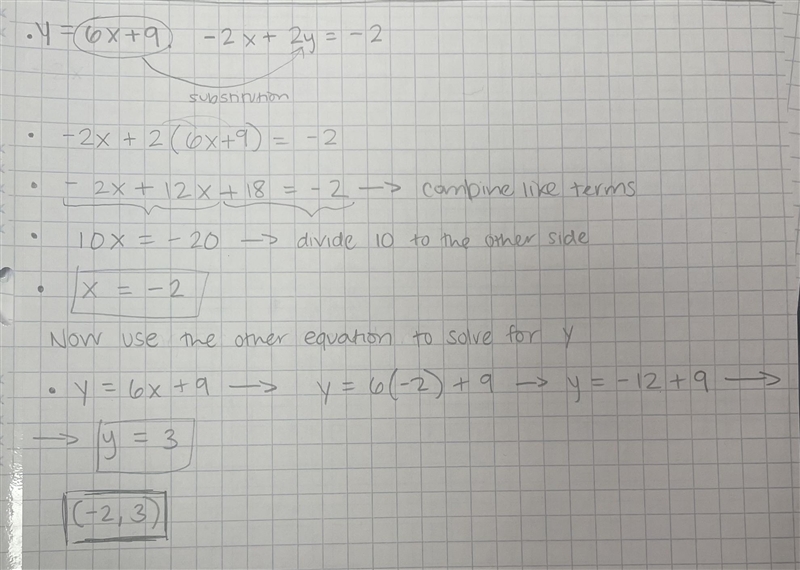 • y = 6x+9   -2x + 2y = -2
substitution
• -2x + 2(6x+9) = -2
• - 2x + 12x + 18 = -2 → combine like terms
• 10x = -20 → divide 10 to the other side
• x = -2
Now use the other equation to solve for y
• y = 6x + 9 → y = 6(-2) + 9 → y = -12 + 9 →
→ y = 3
(-2, 3)